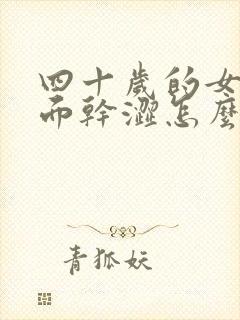 四十歲的女
而幹澀怎麼
青狐妖